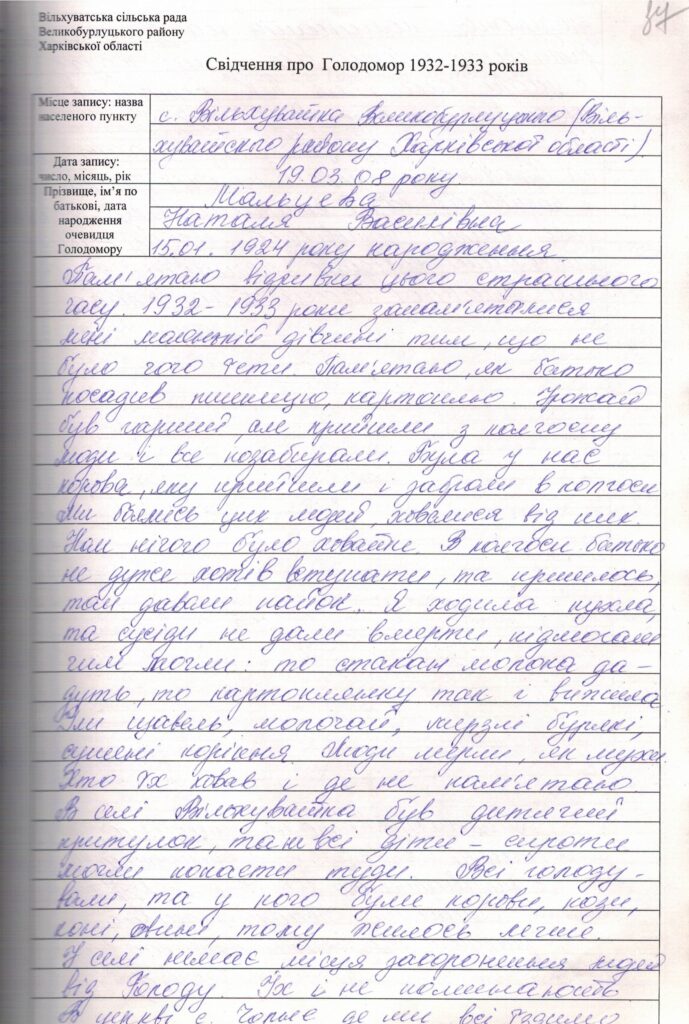 Вільхуватська сільська рада
Великобурлуцького району
Харківської області
34
Свідчення про Голодомор 1932-1933 років
Місце запису: назва населеного пункту
с. Вільхуватка Великобурлуцького (Віль-
хуватского району Харківської області).
Дата запису: число, місяць, рік
19.03.08 року.
Прізвище, ім'я по батькові, дата народження очевидця Голодомору
Мальцева
Наталя Василівна
15.01. 1924 року народження.
Пам'ятаю відривки цього страшного
часу. 1932-1933 роки запам'яталися
мені маленькій дівчині тим, що не
було чого їсти. Пам'ятаю, як батько
посадив пшеницю, картоплю. Урожай
був гарний, але прийшли з колгоспу
люди і все позабирали. Була у нас
корова, яку прийшли і забрали в колгосп.
Ми боялись цих людей, ховалися від них.
Нам нічого було ховати. В колгосп батько
не дуже хотів вступати, та прийшлось,
там давали пайок. Я ходила пухла,
та сусіди не дали вмерти, підмогали
чим могли: то стакан молока да-
дуть, то картоплинку так і вижила.
Їли щавель, молочай, мерзлі буряки,
сушені коріння. Люди мерли, як мухи.
Хто їх ховав і де не пам'ятаю
В селі Вільхуватка був дитячий
притулок, та не всі діти - сироти
могли попасти туди. Всі голоду-
вали, та у кого були корови, кози,
коні, свині, тому жилось легше.
У селі немає місця захоронення людей
від Голоду. Їх і не поминають
В церкві с. де ми всі